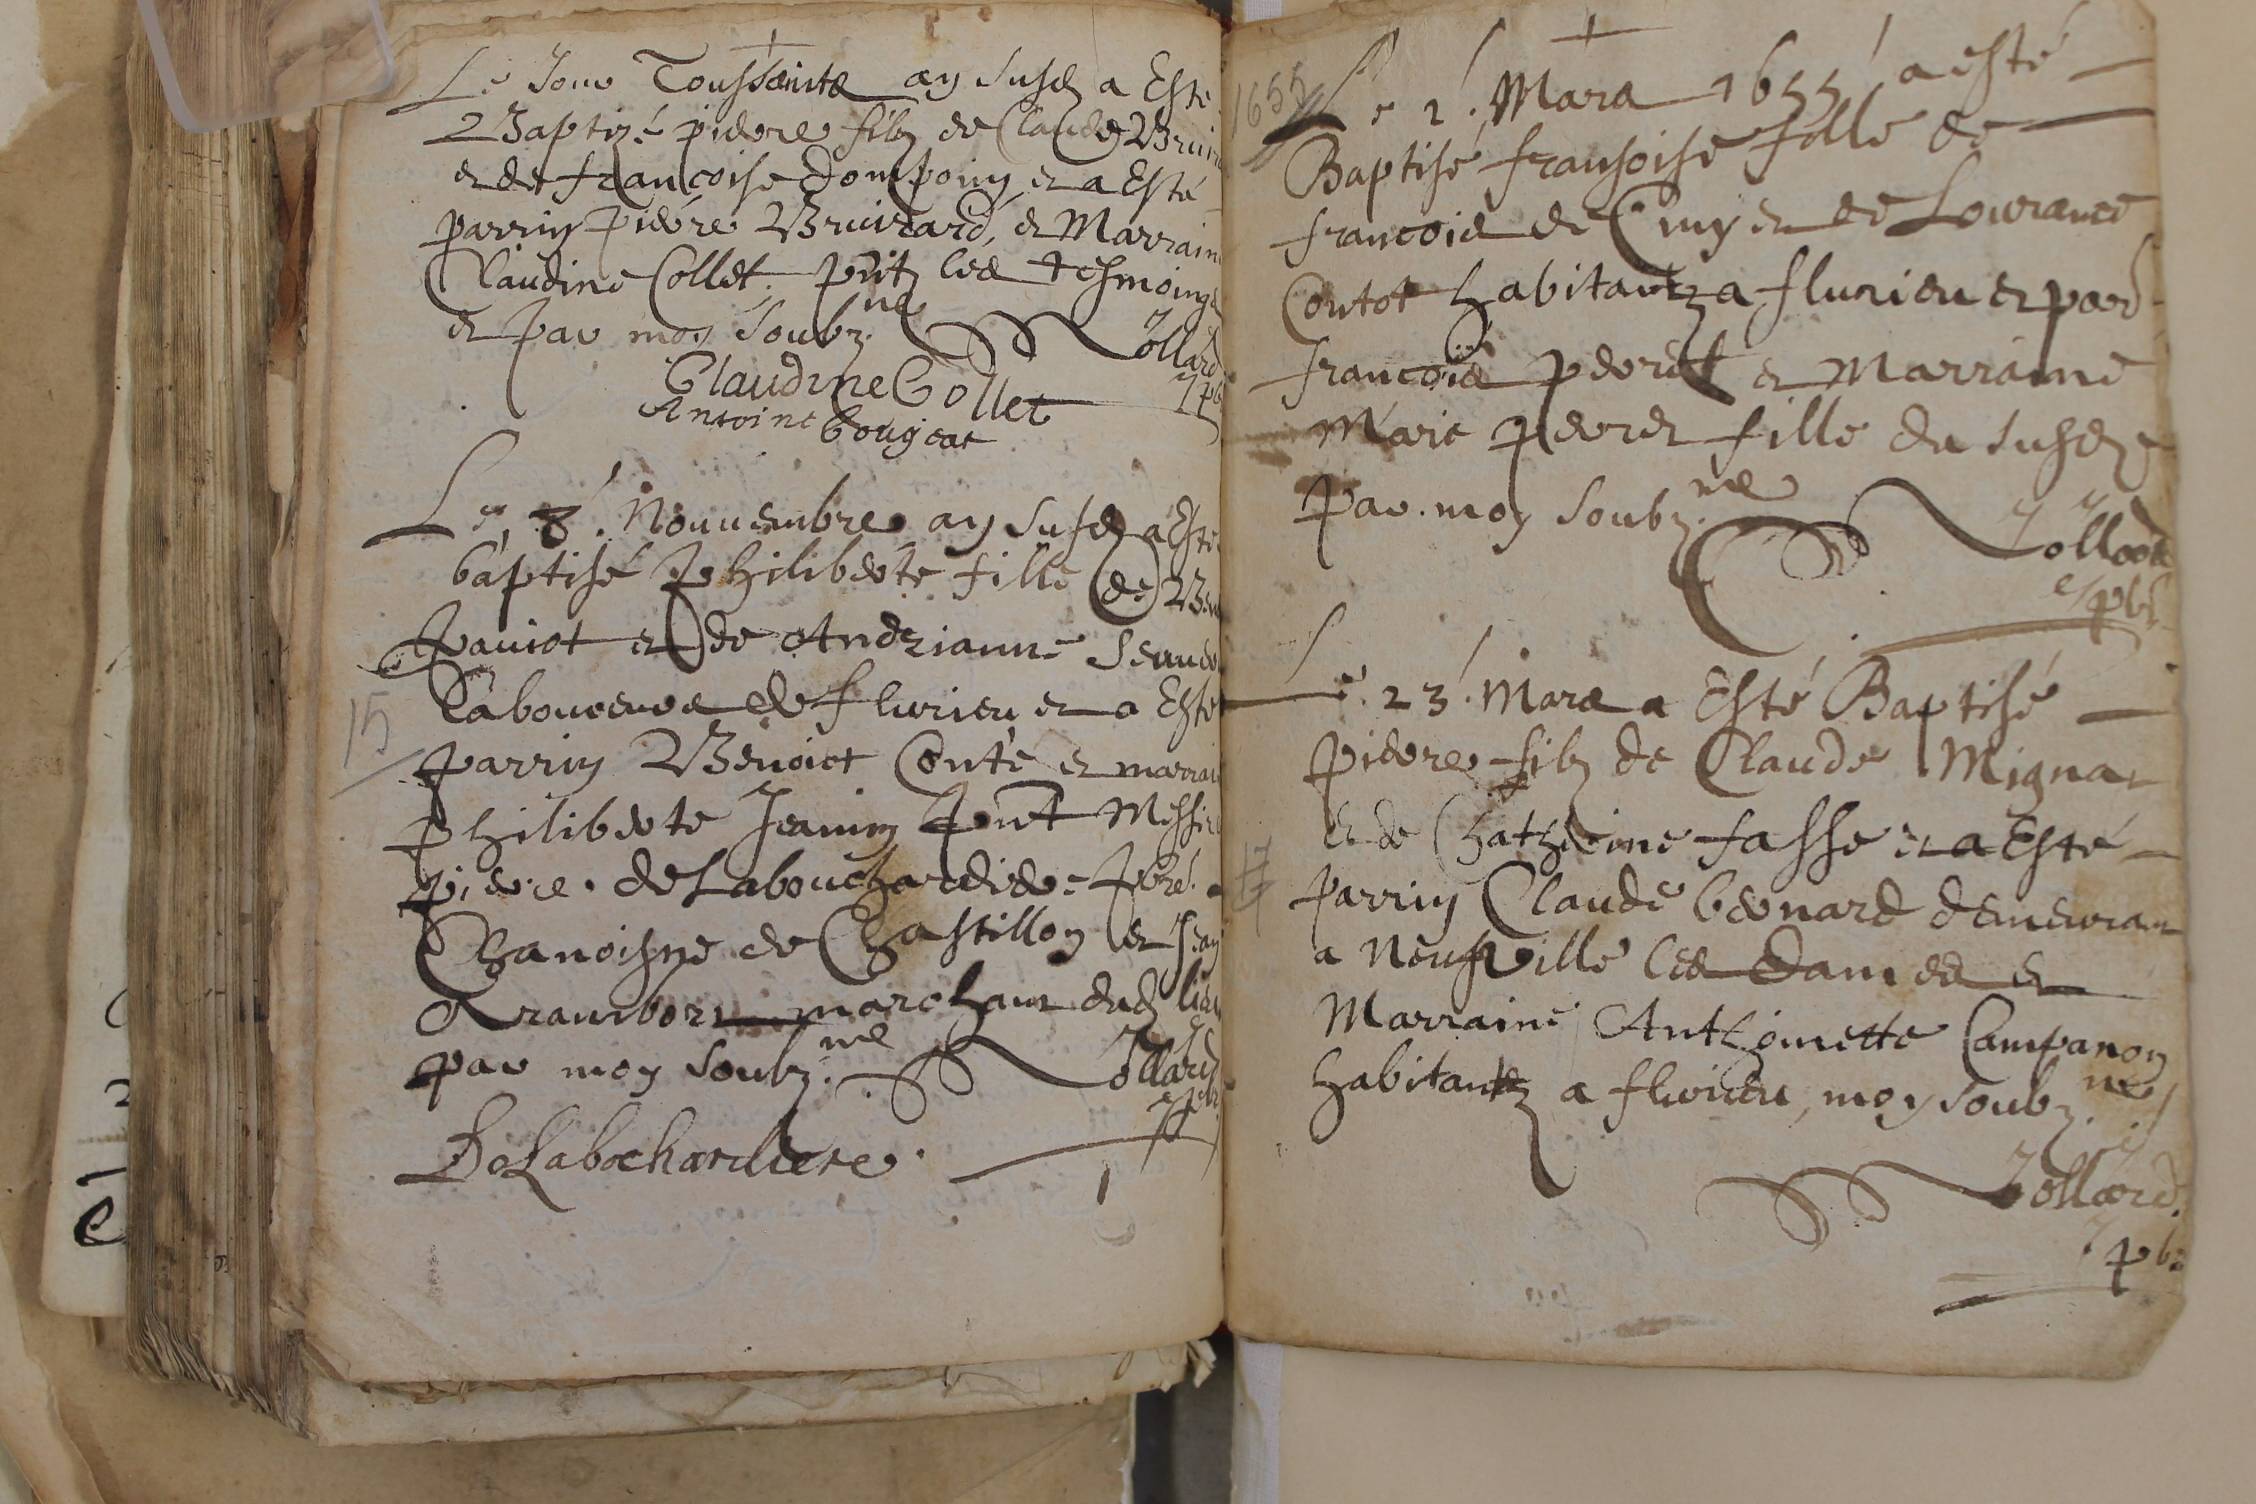 Le Jour Toussaintz an susd a Esté
Baptizé pierre filz de Claude
et de françoise Dompoin et a Esté
parrin pierre Bruirard, et Marraine
Claudine Collet, pntz les tesmoings
et par moy soubz.né Jollard
Claudine Collet pbr
Antoine Bougeat
Le 8. Nouvembre an susd a Esté
baptisé philiberte fille de
paviot et de Andrianne
Laboureurs de flurieu et a Esté
15
parrin Benoict Conte et marraine
philiberte Jeanin pnt Messire
pierre de Labouchardiere pbre.
Chanoisne de Chastillon et Jean
marchant dud lieu
par moy soubz.né Jollard
pbr
DeLabochardiere.
1655
Le 2. Mars 1655 a esté
Baptisé fransoise fille de
francois de Cuny et de Lourance
Contot habitantz a flurieu et par
francois peeret et Marraine
Marie peeret fille du susd
par moy soubz.né Jollard
pbr
Le 23. Mars a Esté Baptisé
pierre filz de Claude Mignat
et de Chatherine fasse et a Esté
parrin Claude bernard demeurant
a Neufville les Dames et
Marraine Anthoinette Campanon
habitantz a flurieu, moy soubz.né
Jollard
pbr